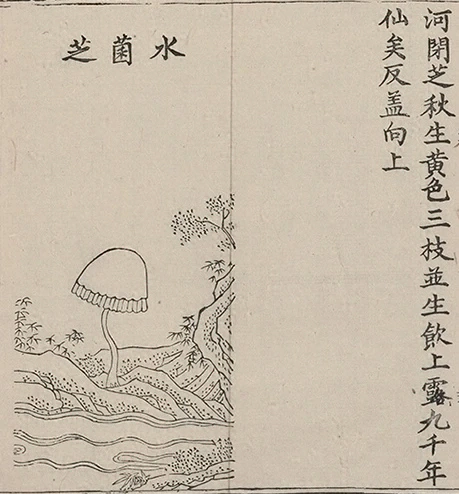 河閉芝秋生黃色三枝並生飲上露九千年
仙矣反盖向上
水菌芝